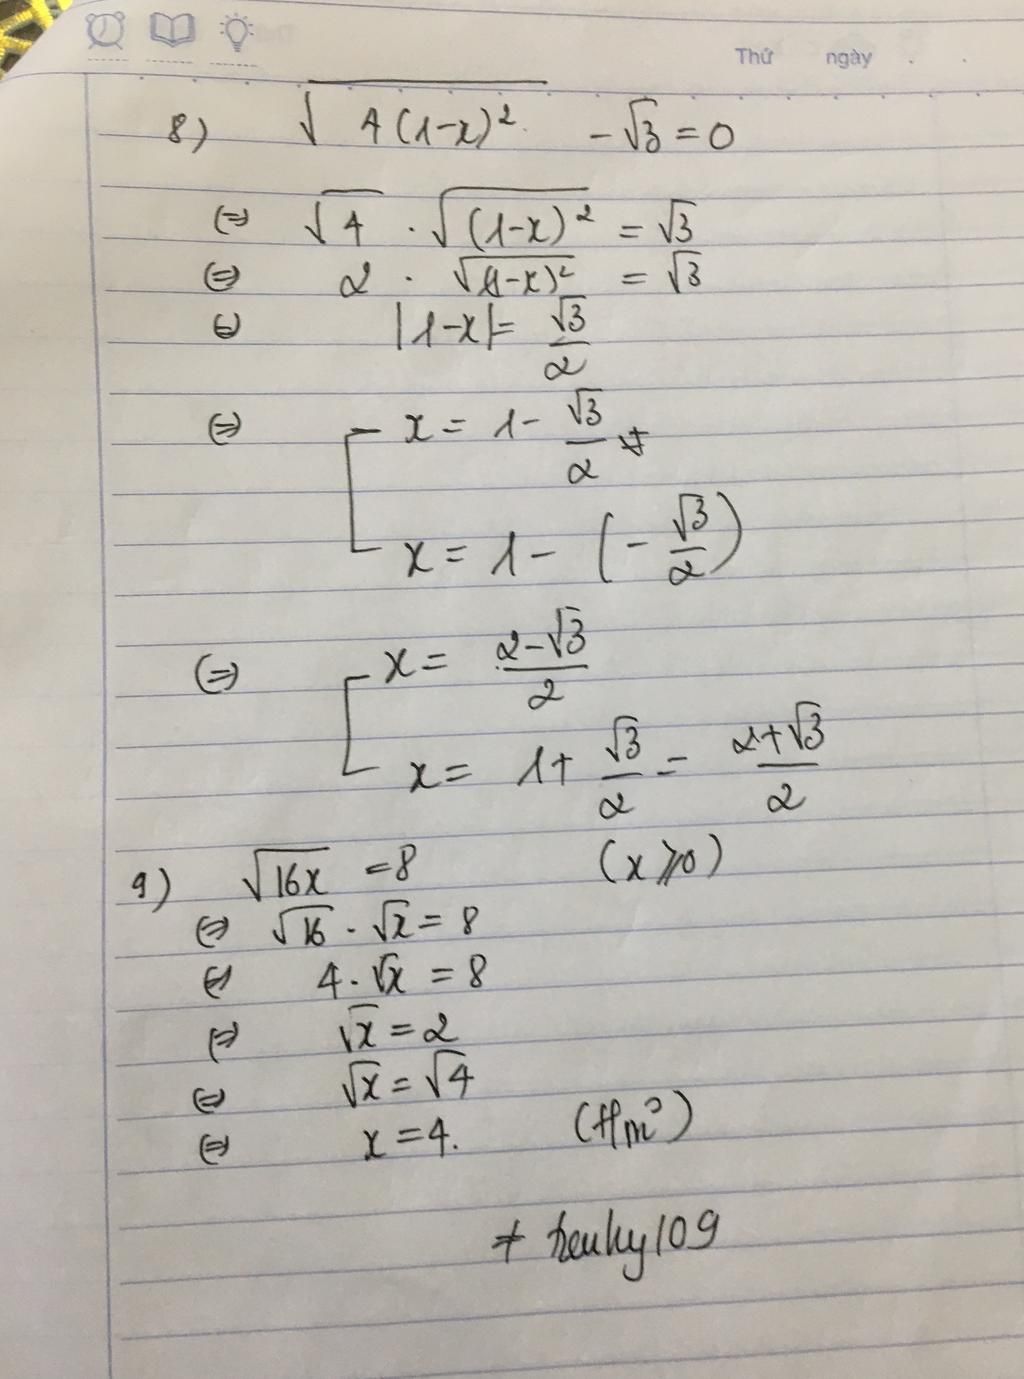 Thứ ngày
8) √4(1-x)² - √3 = 0
(=) √4 . √(1-x)² = √3
(=) 2 . √(1-x)² = √3
(=) |1-x| = √3/2
(=) x = 1 - √3/2
x = 1 - (-√3/2)
(=) x = 2-√3/2
x = 1 + √3/2 = 2+√3/2
9) √16x = 8 (x ⩾ 0)
(=) √16 . √x = 8
(=) 4 . √x = 8
(=) √x = 2
(=) √x = √4
(=) x = 4. (t/m)